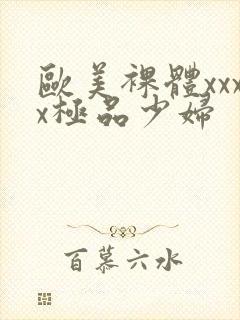 歐美裸體xxx
x極品少婦
百慕六水